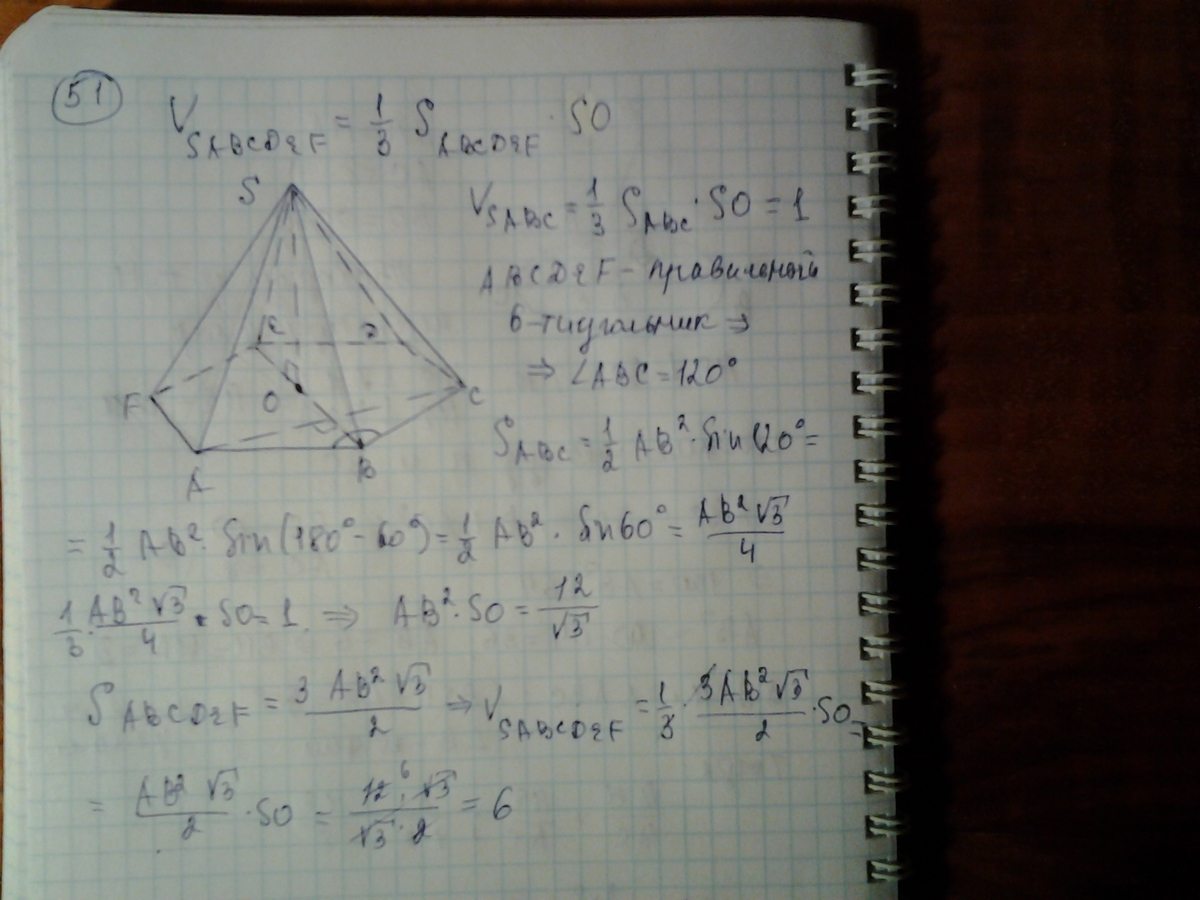 51
V_SABCDEF = 1/3 S_ABCDEF · SO
V_SABC = 1/3 S_ABC · SO = 1
ABCDEF – правильный
6-тиугольник ⇒
⇒ ∠ABC = 120°
S_ABC = 1/2 AB² · Sin 120° =
S
E
D
F
O
C
A
B
= 1/2 AB² · Sin(180° – 60°) = 1/2 AB² · Sin 60° = AB²√3/4
1/3 · AB²√3/4 · SO = 1 ⇒ AB² · SO = 12/√3
S_ABCDEF = 3AB²√3/2 ⇒ V_SABCDEF = 1/3 · 3AB²√3/2 · SO =
= AB²√3/2 · SO = 12 6 · √3/√3 · 2 = 6